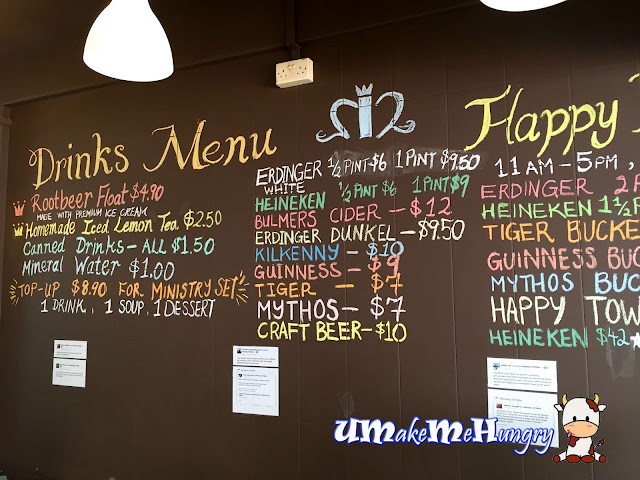 Drinks Menu
Rootbeer Float $4.90
MADE WITH PREMIUM ICE CREAM
Homemade Iced Lemon Tea $2.50
Canned Drinks - ALL $1.50
Mineral Water $1.00
TOP-UP $8.90 FOR MINISTRY SET
1 DRINK, 1 SOUP, 1 DESSERT
ERDINGER 1/2 PINT $6 1 PINT $9.50
WHITE
HEINEKEN 1/2 PINT $6 1 PINT $9
BULMERS CIDER - $12
ERDINGER DUNKEL - $9.50
KILKENNY - $10
GUINNESS - $9
TIGER - $7
MYTHOS - $7
CRAFT BEER - $10
Happy
11 AM - 5 PM,
ERDINGER 2
HEINEKEN 1 1/2
TIGER BUCKE
GUINNESS BUC
MYTHOS BUC
HAPPY TOW
HEINEKEN $42
UMakeMeHungry